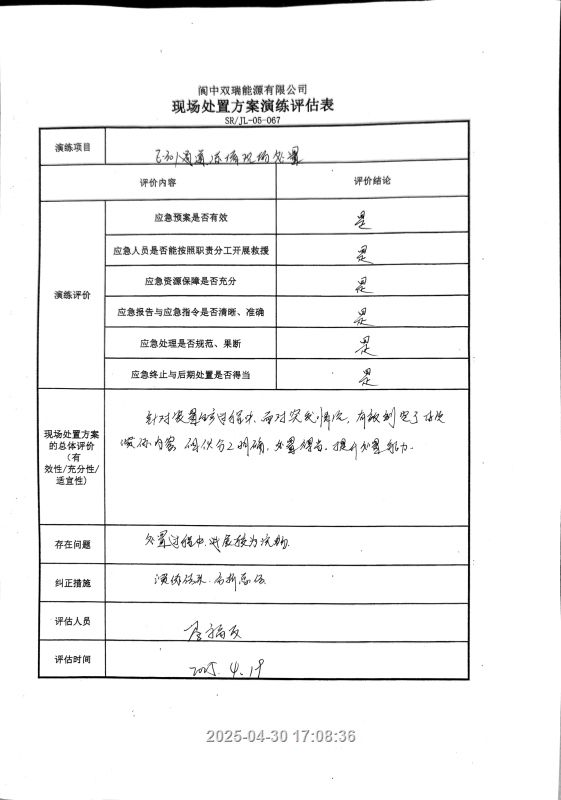 阆中双瑞能源有限公司
现场处置方案演练评估表
SR/JL-05-067
演练项目
现场处置
评价内容
评价结论
演练评价
应急预案是否有效
是
应急人员是否能按照职责分工开展救援
是
应急资源保障是否充分
是
应急报告与应急指令是否清晰、准确
是
应急处理是否规范、果断
是
应急终止与后期处置是否得当
是
现场处置方案
的总体评价
（有
效性/充分性/
适宜性）
针对装置生产过程中,面对突发情况,有
演练内容 分工明确,处置得当。提升处置能力.
存在问题
处置过程中,
纠正措施
演练结束,
评估人员
评估时间
2025.4.19
2025-04-30 17:08:36